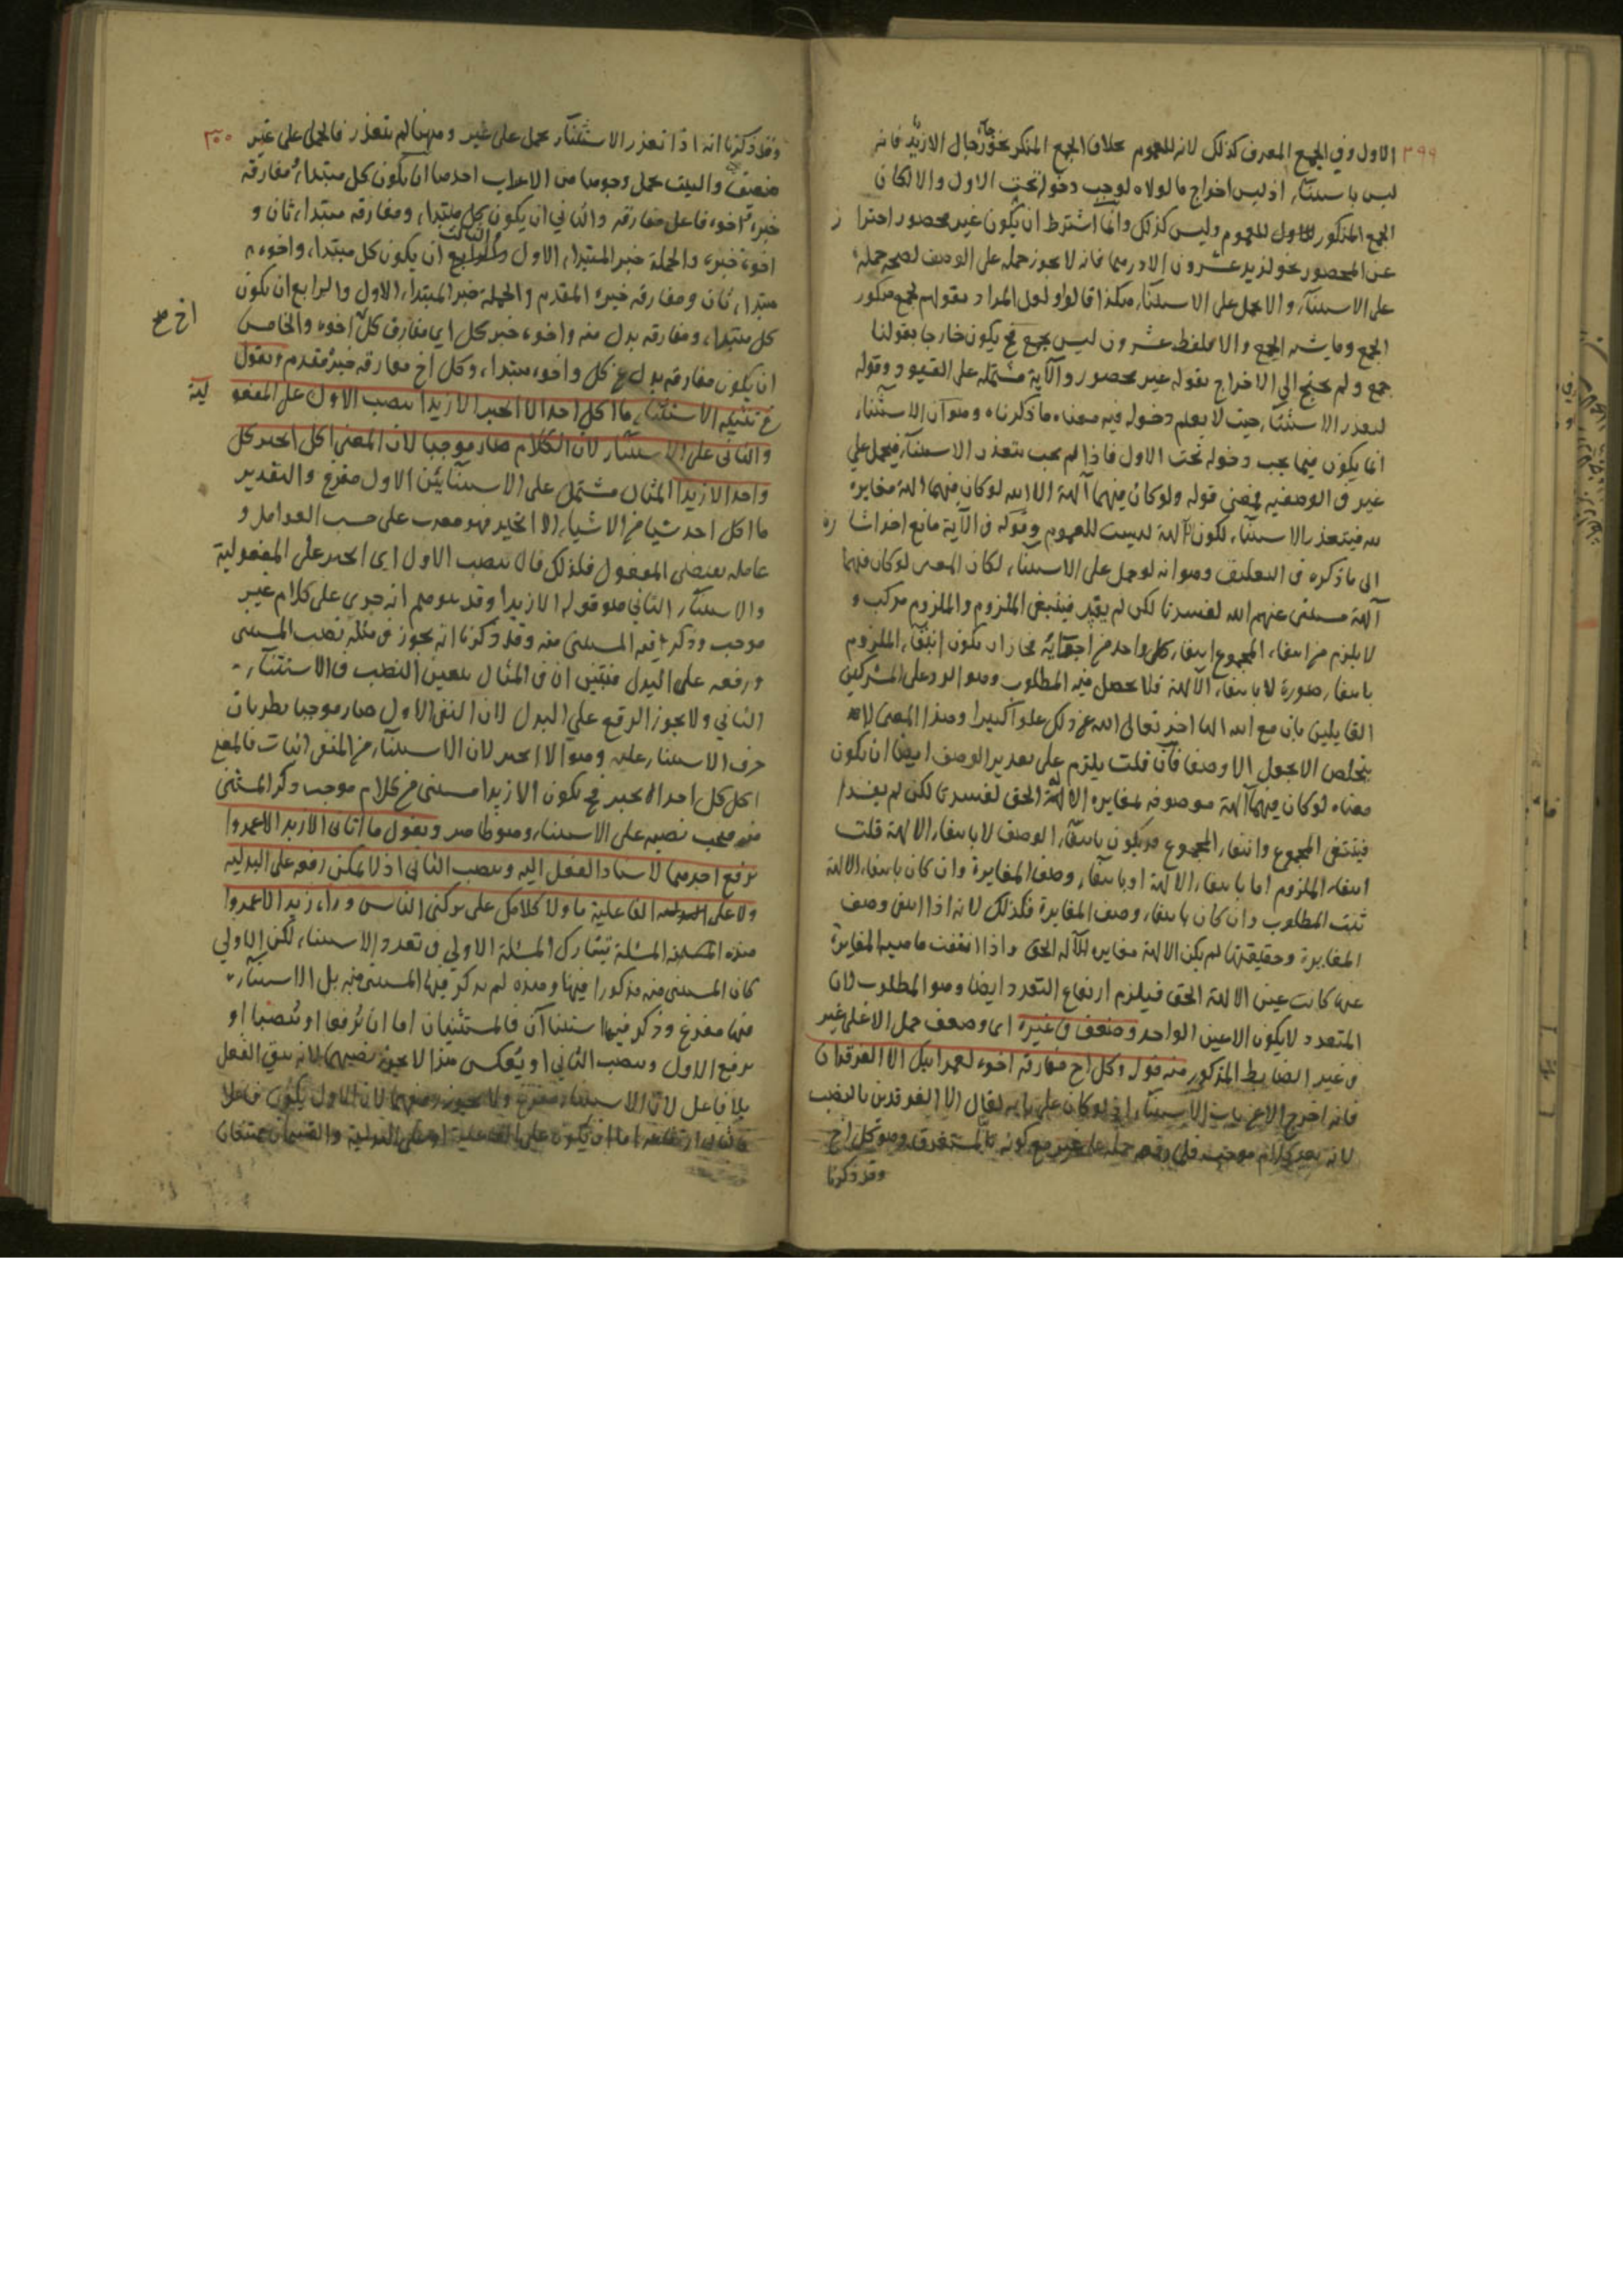 ٢٩٩
الاول وفي الجمع المعرف كذلك لانه للعموم بخلاف الجمع المنكر نحو جاء رجال الا زيد فانه
ليس باستثناء اذ ليس اخراج ما لولاه لوجب دخوله تحت الاول والا لكان
الجمع المذكور للعموم وليس كذلك وانما اشترط ان يكون غير محصور احترا ز
عن المحصور نحو لزيد عشرون الا درهما فانه لا يجوز حمله على الوصف لصحة حمله
على الاستثناء والا يحمل على الاستثناء هكذا قالوا ولعل المراد بقولهم لجمع منكور
الجمع وما يشبه الجمع والا فلفظ عشرون ليس بجمع فح يكون خارجا بقولنا
جمع ولم يحتج الى الاخراج بقوله غير محصور والآية مشتملة على القيود وقوله
لتعذر الاستثناء حيث لا يعلم دخوله فيه معناه ما ذكرناه وهو ان الاستثناء
انما يكون فيما يجب دخوله تحت الاول فاذا لم يجب يتعذر الاستثناء فيحمل على
غير في الوصفية فمعنى قوله ولو كان فيهما آلهة الا الله لو كان فيهما الهة مغايرة
لله فيتعذر الاستثناء لكون آلهة ليست للعموم وقوله في الآية مانع اخر اشا رة
الى ما ذكره في التعليق وهو انه لو حمل على الاستثناء لكان المعنى لو كان فيهما
آلهة مستثنى عنهم الله لفسدتا لكن لم يفسد فينتفي الملزوم والملزوم مركب و
لا يلزم من انتفاء المجموع انتفاء كل واحد من اجزائه فجاز ان يكون انتفاء الملزوم
بانتفاء صورة لا بانتفاء الآلهة فلا يحصل فيه المطلوب وهو الرد على المشركين
القايلين بان مع الله الها اخر تعالى الله عن ذلك علوا كبيرا وهذا المعنى لا
يتخلص الا بجعل الا وصفا فان قلت يلزم على تقدير الوصف ايضا ان يكون
معناه لو كان فيهما آلهة موصوفة لمغايرة الآلهة الحق لفسدتا لكن لم يفسدا
فينتفي المجموع وانتفاء المجموع قد يكون بانتفاء الوصف لا بانتفاء الالهة قلت
انتفاء الملزوم اما بانتفاء الالهة او بانتفاء وصف المغايرة وان كان بانتفاء الالهة
ثبت المطلوب وان كان بانتفاء وصف المغايرة فكذلك لانه اذا انتفى وصف
المغايرة وحقيقتها لم يكن الالهة مغايرة للآله الحق واذا انتفت ماهية المغايرة
عنها كانت عين الالهة الحق فيلزم ارتفاع التعدد ايضا وهو المطلوب لان
المتعدد لا يكون الا عين الواحد وضعف في غيره اى وضعف حمل الا على غير
في غير الضابط المذكور منه قول وكل اخ مفارقه اخوه لعمر ابيك الا الفرقدان
فانه اخرج الا عن باب الاستثناء اذ لو كان على بابه لقال الا الفرقدين بالنصب
لانه بعد كلام موجب فلم وقعه حمله على غير مع كونه تابعا لمستغرق وهو كل اخ
وقد ذكرنا
٣٠٠
وقد ذكرنا انه اذا تعذر الاستثناء يحمل على غير وههنا لم يتعذر فالحمل على غير
ضعيف والبيت يحمل وجوها من الاعراب احدها ان يكون كل مبتداء مفارقه
خبره اخوه فاعل مفارقه والثاني ان يكون كل مبتداء ومفارقه مبتداء ثان و
اخوه خبره والجملة خبر المبتداء الاول والثالث ان يكون كل مبتداء واخوه
مبتداء ثان ومفارقه خبره المقدم والجملة خبر المبتداء الاول والرابع ان يكون
كل مبتداء ومفارقه بدل منه واخوه خبر كل اي مفارق كل اخ اخوه والخامس
اخ صح
ان يكون مفارقه بدل عن كل واخوه مبتداء وكل اخ مفارقه خبره مقدم وتقول
في تثنية الاستثناء ما اكل احد الا الخبز الا زيدا بنصب الاول على المفعو لية
والثاني على الاستثناء لان الكلام صار موجبا لان المعنى اكل الخبز كل
واحد الا زيدا المثال مشتمل على الاستثنايين الاول مفرغ والتقدير
ما اكل احد شيا من الاشياء الا الخبز فهو معرب على حسب العوامل و
عامله يقتضى المفعول فلذلك قال بنصب الاول اى الخبز على المفعولية
والاستثناء الثاني هو قوله الا زيدا وقد يتوهم انه جرى على كلام غير
موجب وذكر فيه المستثنى منه وقد ذكرنا انه يجوز في مثله نصب المستثنى
ورفعه على البدل فتبين ان في المثال يتعين النصب في الاستثناء
الثاني ولا يجوز الرفع على البدل لان النفى الاول صار موجبا بطريان
حرف الاستثناء عليه وهو الا الخبز لان الاستثناء من المنفى اثبات فالمعنى
اكل كل احد الخبز فح يكون الا زيدا مستثنى من كلام موجب ذكر المستثنى
منه فيجب نصبه على الاستثناء وهو ظاهر وتقول ما اتانى الا زيد الا عمروا
برفع احدهما لاسناد الفعل اليه وبنصب الثانى اذ لا يمكن رفعه على البدلية
ولا على الفاعلية ما ولا كلامك على تركنى الناس وراء زيد الا عمروا
هذه المسئلة تشارك المسئلة الاولى في تعدد الاستثناء لكن الاولى
كان المستثنى منه مذكورا فيها وهذه لم يذكر فيها المستثنى منه بل الاستثناء
فيها مفرغ وذكر فيها استثناآن فالمستثنيان اما ان يرفعا او ينصبا او
يرفع الاول وينصب الثاني او يعكس هذا لا يجوز نصبهما لانه يبقى الفعل
بلا فاعل لان الاستثناء مفرغ ولا يجوز رفعهما لان الاول يكون فاعلا
والثانى ارتفاعه اما ان يكون على الفاعلية او على البدلية والقسمان ممتنعان